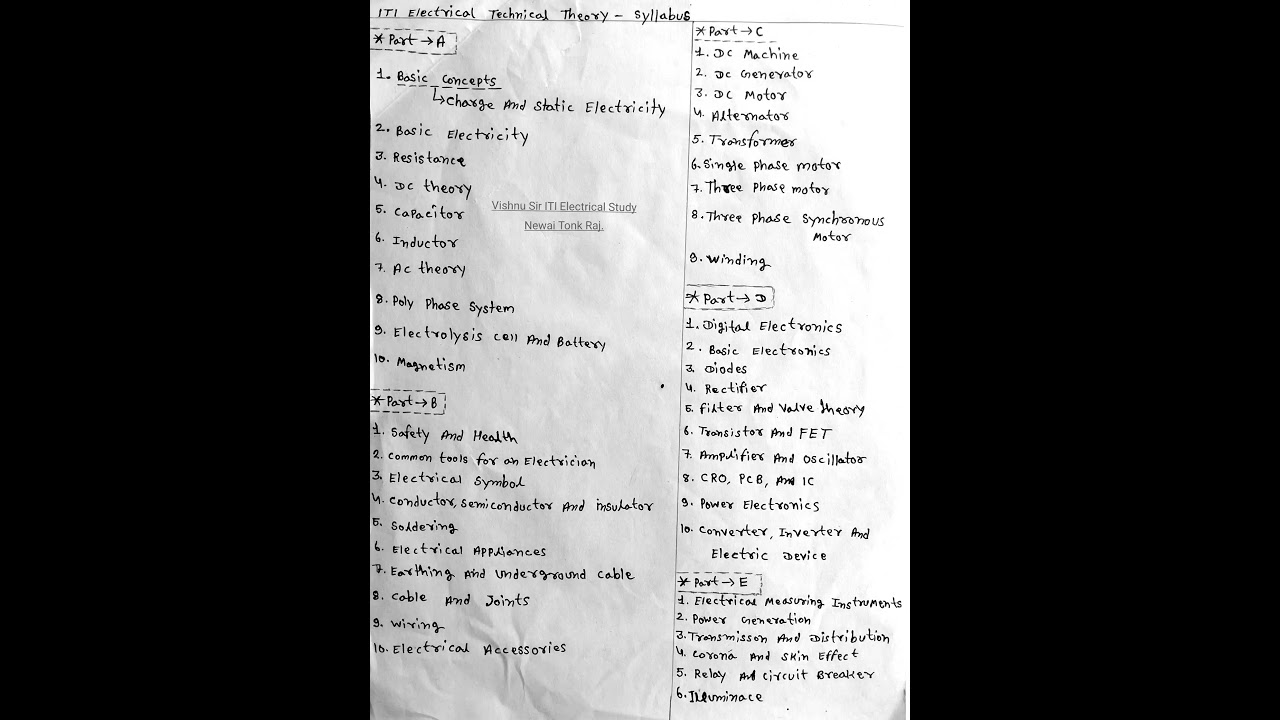 ITI Electrical Technical Theory - Syllabus
* Part → A
1. Basic Concepts
↳ Charge And Static Electricity
2. Basic Electricity
3. Resistance
4. DC theory
5. Capacitor
6. Inductor
7. AC theory
8. Poly Phase System
9. Electrolysis Cell And Battery
10. Magnetism
Vishnu Sir ITI Electrical Study
Newai Tonk Raj.
* Part → B
1. Safety And Health
2. Common tools for an Electrician
3. Electrical Symbol
4. Conductor, Semiconductor And insulator
5. Soldering
6. Electrical Appliances
7. Earthing And Underground Cable
8. Cable And Joints
9. Wiring
10. Electrical Accessories
* Part → C
1. DC Machine
2. DC Generator
3. DC Motor
4. Alternator
5. Transformer
6. Single Phase motor
7. Three Phase motor
8. Three Phase Synchronous
Motor
9. Winding
* Part → D
1. Digital Electronics
2. Basic Electronics
3. Diodes
4. Rectifier
5. Filter And Valve theory
6. Transistor And FET
7. Amplifier And Oscillator
8. CRO, PCB, And IC
9. Power Electronics
10. Converter, Inverter And
Electric Device
* Part → E
1. Electrical Measuring Instruments
2. Power Generation
3. Transmisson And Distribution
4. Corona And Skin Effect
5. Relay And Circuit Breaker
6. Illuminace